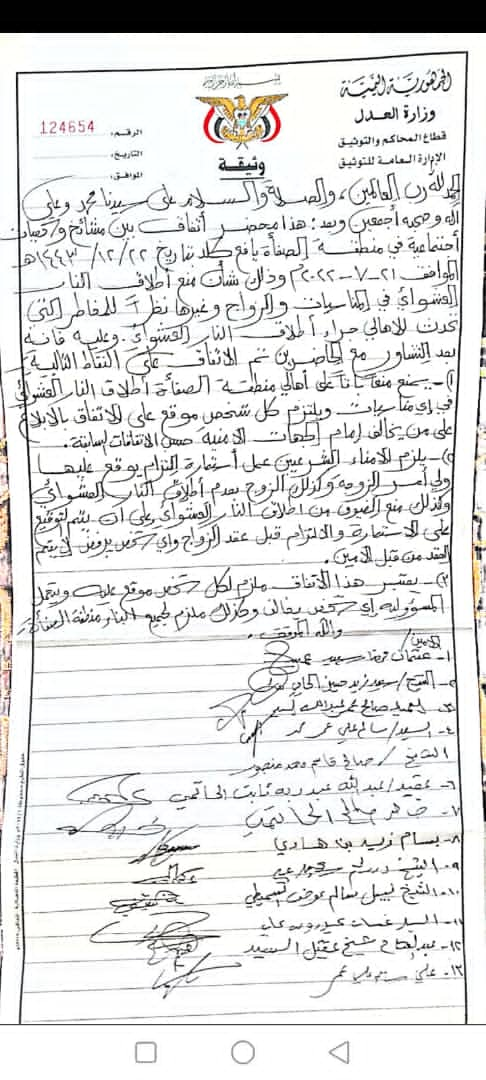 بسم الله الرحمن الرحيم
الجمهورية اليمنية
وزارة العدل
قطاع المحاكم والتوثيق
الإدارة العامة للتوثيق
الرقم: 124654
التاريخ:
الموافق:
وثيقة
الحمد لله رب العالمين، والصلاة والسلام على سيدنا محمد وعلى
اله وصحبه أجمعين وبعد: هذا محضر أتفاق بين مشائخ و
أجتماعية في منطقة الصفأة يافع كلد بتاريخ ٢٢/١٢/١٤٤٣هـ
الموافق ٢١-٧-٢٠٢٢م وذلك بشأن منع أطلاق النار
العشوائي في المناسبات والزواج وغيرها نظراً للمخاطر التي
تحدث للاهالي جراء أطلاق النار العشوائي. وعليه فانه
بعد التشاور مع الحاضرين تم الاتفاق على النقاط التالية:
١)- يمنع منعاً باتاً على أهالي منطقة الصفأة أطلاق النار العشوائي
في اي مناسبات ويلتزم كل شخص موقع على الاتفاق بالابلاغ
على من يخالف أمام الجهات الامنية حسب الاتفاقات السابقة.
٢)- يلزم الامناء الشرعيين عمل أستمارة التزام يوقع عليها
ولي أمر الزوجة وكذلك الزوج بعدم أطلاق النار العشوائي
وكذلك منع الضيوف من اطلاق النار العشوائي على ان يتم التوقيع
على الاستمارة والالتزام قبل عقد الزواج واي شخص يرفض لا يتم
العقد من قبل الامين.
٣)- يعتبر هذا الاتفاق ملزم لكل شخص موقع عليه ويتحمل
المسؤولية اي شخص يخالف وكذلك ملزم لجميع ابناء منطقة الصفأة
والله الموفق.
١- عثمان سعيد
٢- الشيخ / زيد حسين
٣- صالح محمد
٤- السيد / سالم علي عمر محمد
الشيخ / صالح قاسم محمد منصور
٦- عقيد / عبدالله عبدربه ثابت الحاتمي
٧- صالح
٨- بسام زيد بن هادي
٩- الشيخ
١٠- الشيخ نبيل سالم عوض
١١- السيد عيدروس علي
١٢- شيخ عقيل السيد
١٣- علي عمر